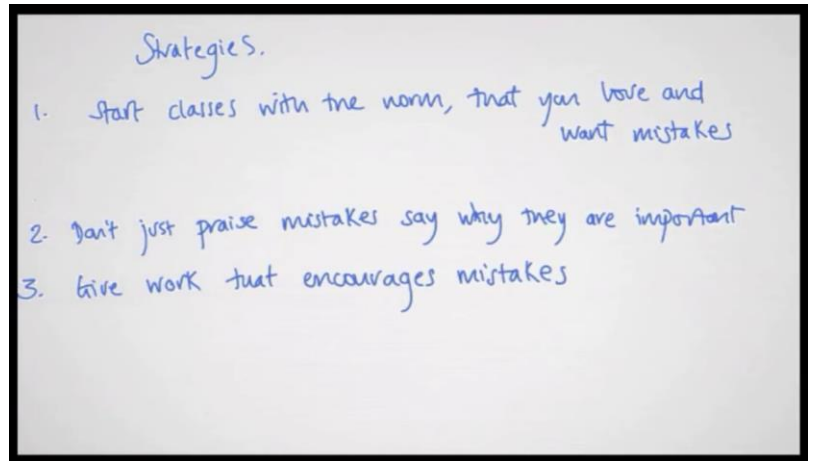 Strategies.
1. Start classes with the norm, that you love and
want mistakes
2. Don't just praise mistakes say why they are important
3. Give work that encourages mistakes